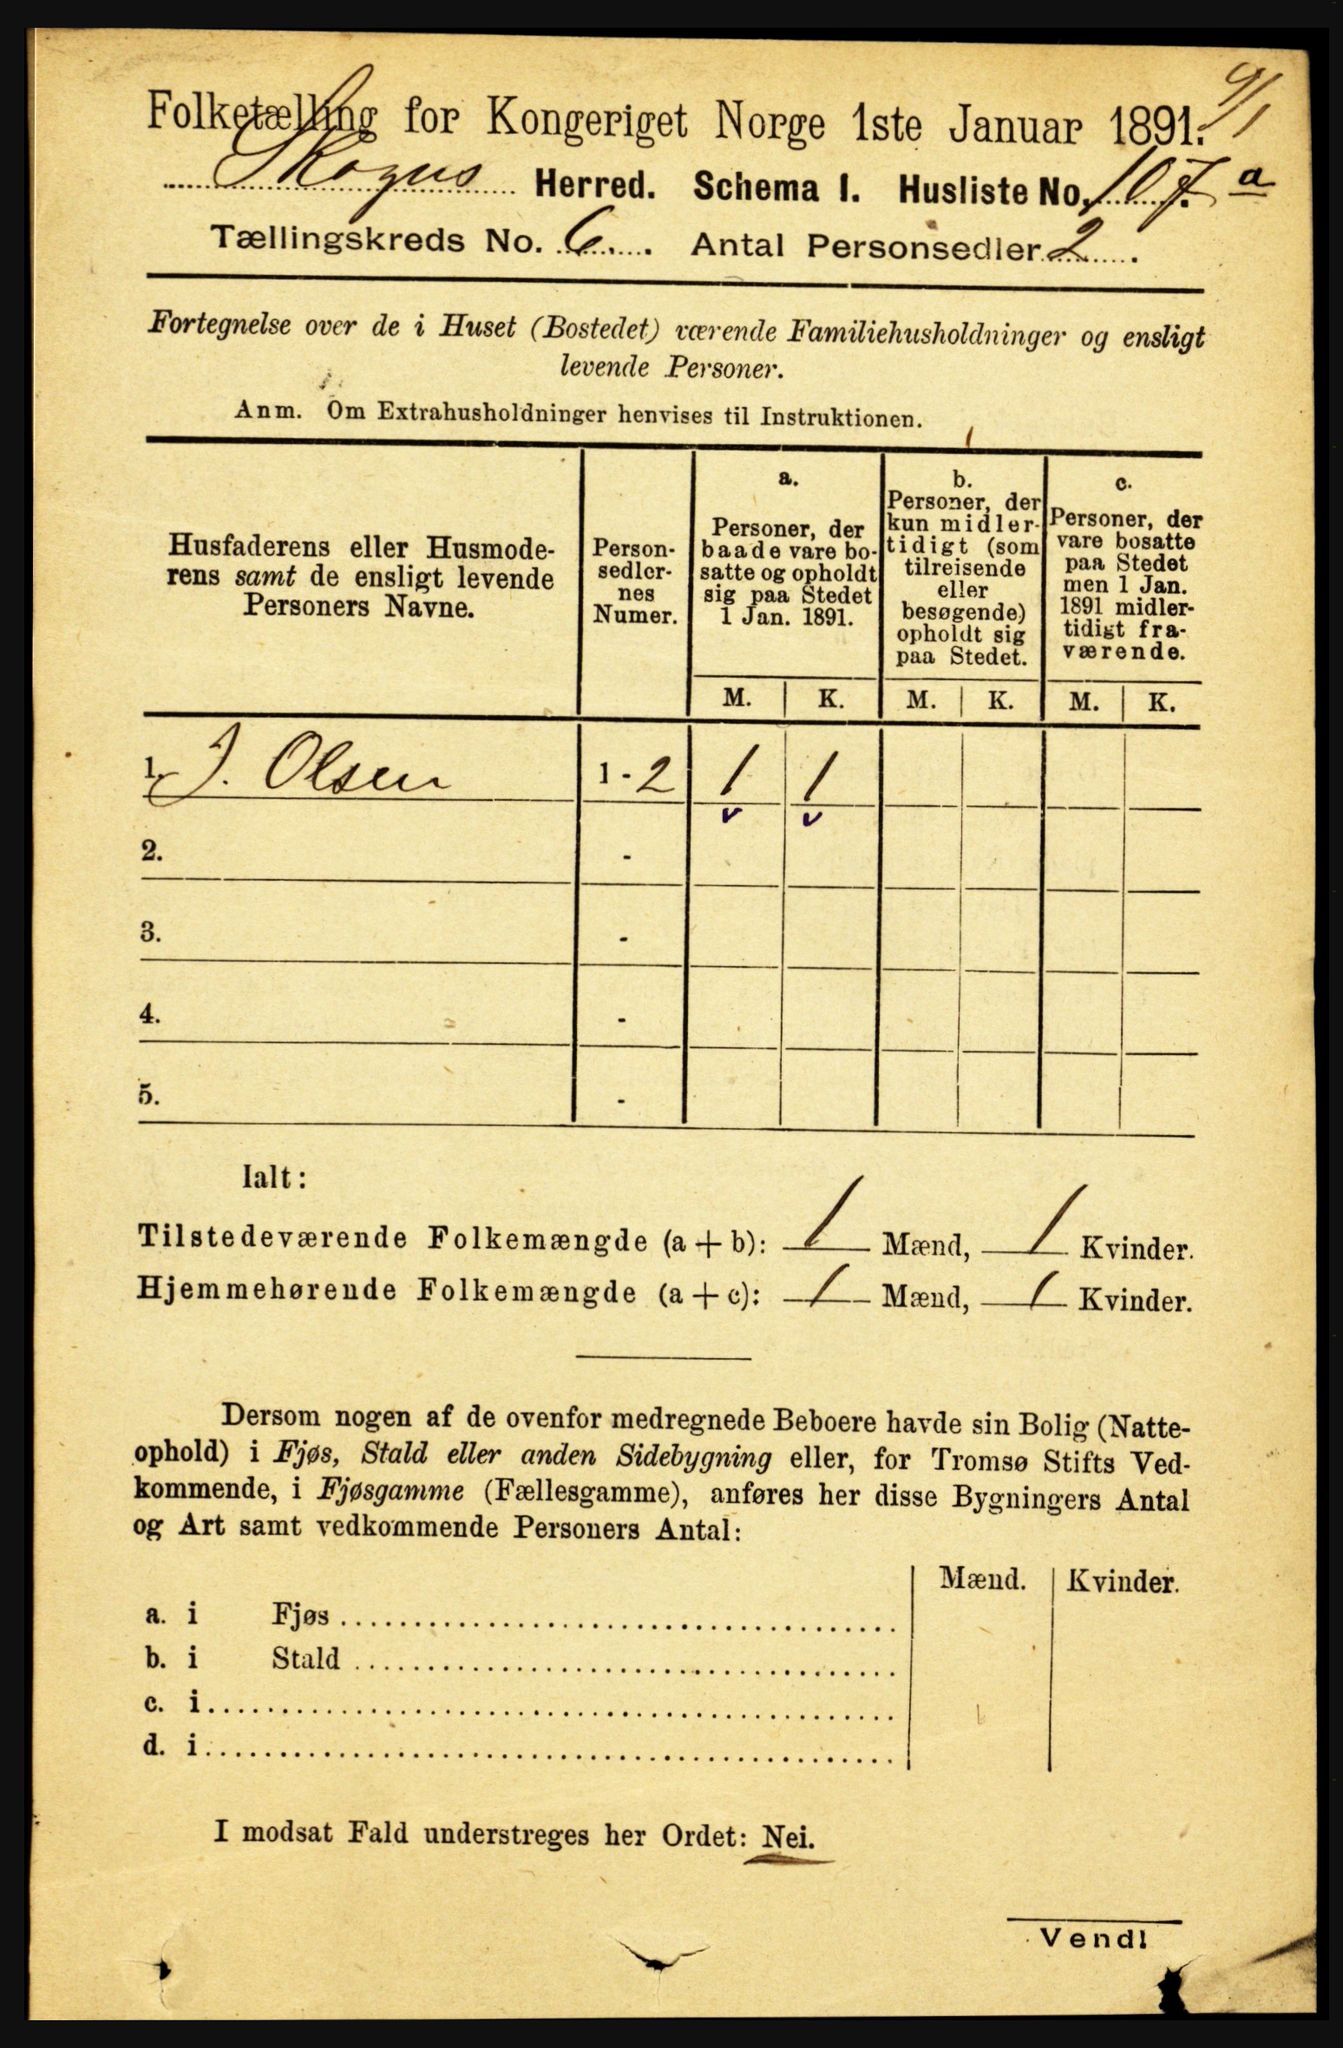 9/1
Folketælling for Kongeriget Norge 1ste Januar 1891.
Skogns Herred. Schema I. Husliste No. 107. a
Tællingskreds No. 6. Antal Personsedler 2.
Fortegnelse over de i Huset (Bostedet) værende Familiehusholdninger og ensligt
levende Personer.
Anm. Om Extrahusholdninger henvises til Instruktionen.
Husfaderens eller Husmode-
rens samt de ensligt levende
Personers Navne.
Person-
sedler-
nes
Numer.
a.
Personer, der
baade vare bo-
satte og opholdt
sig paa Stedet
1 Jan. 1891.
b.
Personer, der
kun midler-
tidigt (som
tilreisende
eller
besøgende)
opholdt sig
paa Stedet.
c.
Personer, der
vare bosatte
paa Stedet
men 1 Jan.
1891 midler-
tidigt fra-
værende.
M. K. M. K. M. K.
1. J. Olsen 1 - 2 1 1
2. -
3. -
4. -
5. -
Ialt:
Tilstedeværende Folkemængde (a + b): 1 Mænd, 1 Kvinder.
Hjemmehørende Folkemængde (a + c): 1 Mænd, 1 Kvinder.
Dersom nogen af de ovenfor medregnede Beboere havde sin Bolig (Natte-
ophold) i Fjøs, Stald eller anden Sidebygning eller, for Tromsø Stifts Ved-
kommende, i Fjøsgamme (Fællesgamme), anføres her disse Bygningers Antal
og Art samt vedkommende Personers Antal:
Mænd. Kvinder.
a. i Fjøs
b. i Stald
c. i
d. i
I modsat Fald understreges her Ordet: Nei.
Vend!